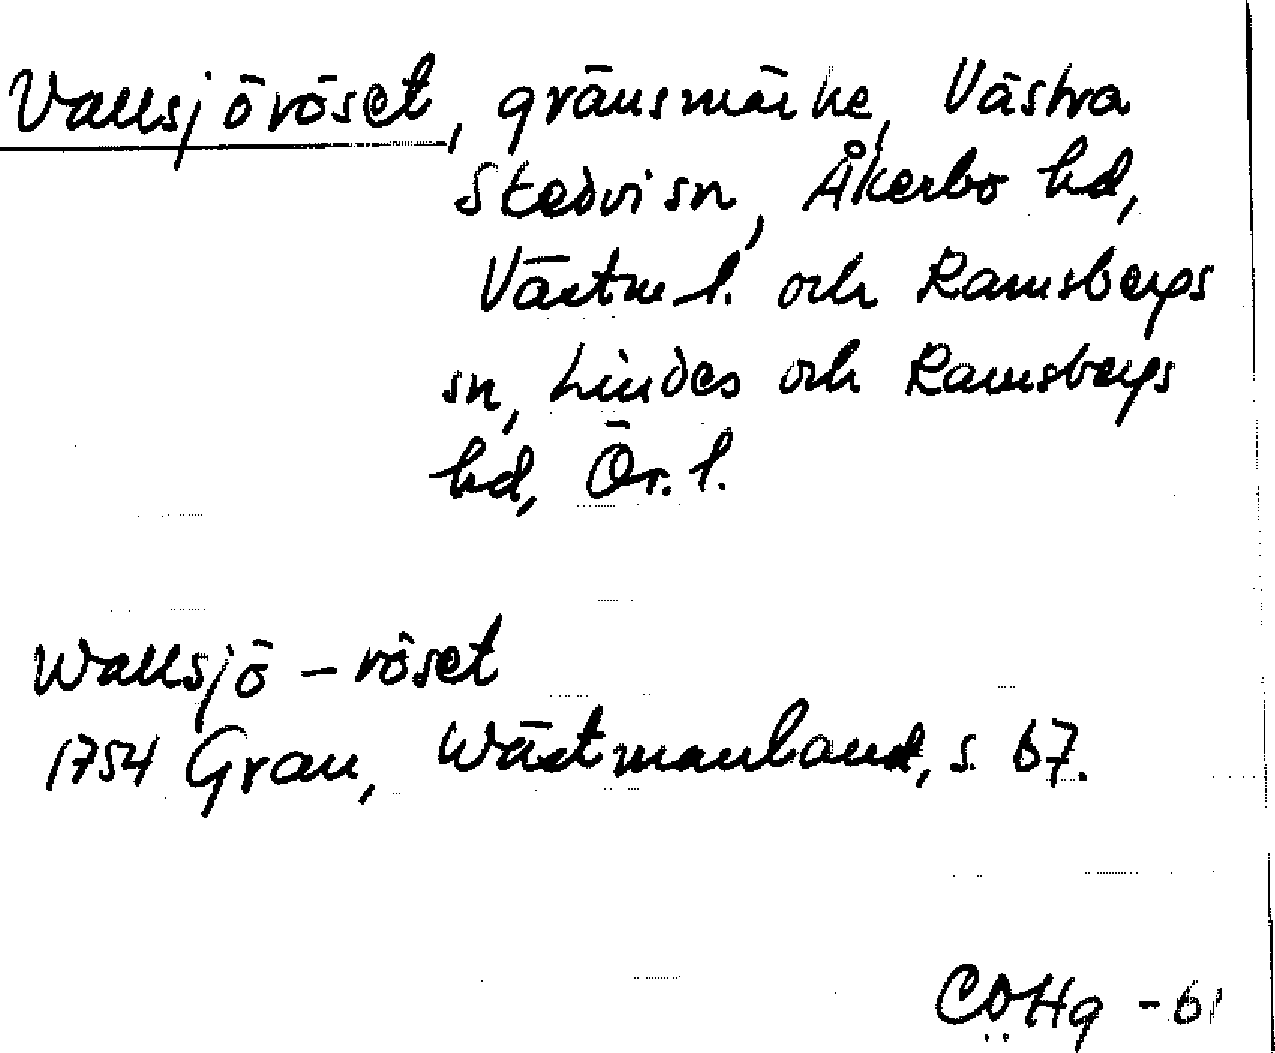 Vallsjöröset, gränsmärke, Västra
Skedvi sn, Åkerbo hd,
Västm. l. och Ramsbergs
sn, Lindes och Ramsbergs
hd, Ör. l.
Wallsjö – röset
1754 Grau, Wästmanland, s. 67.
CÖHg - 61